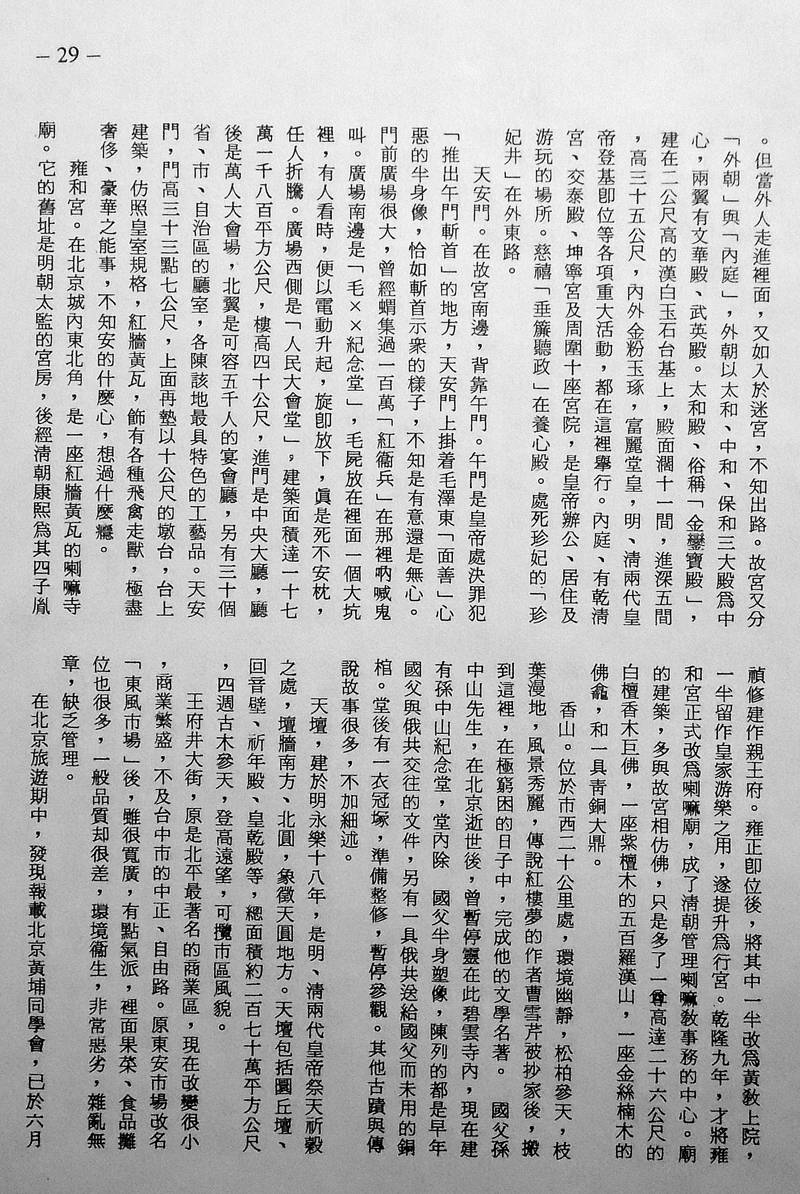 – 29 –
。但當外人走進裡面，又如入於迷宮，不知出路。故宮又分
「外朝」與「內庭」，外朝以太和、中和、保和三大殿爲中
心，兩翼有文華殿、武英殿。太和殿、俗稱「金鑾寶殿」，
建在二公尺高的漢白玉石台基上，殿面濶十一間，進深五間
，高三十五公尺，內外金粉玉琢，富麗堂皇，明、淸兩代皇
帝登基卽位等各項重大活動，都在這裡舉行。內庭、有乾淸
宮、交泰殿、坤寧宮及周圍十座宮院，是皇帝辦公、居住及
游玩的場所。慈禧「垂簾聽政」在養心殿。處死珍妃的「珍
妃井」在外東路。
天安門。在故宮南邊，背靠午門。午門是皇帝處決罪犯
「推出午門斬首」的地方，天安門上掛着毛澤東「面善」心
惡的半身像，恰如斬首示衆的樣子，不知是有意還是無心。
門前廣場很大，曾經蝟集過一百萬「紅衞兵」在那裡吶喊鬼
叫。廣場南邊是「毛××紀念堂」，毛屍放在裡面一個大坑
裡，有人看時，便以電動升起，旋卽放下，眞是死不安枕，
任人折騰。廣場西側是「人民大會堂」，建築面積達一十七
萬一千八百平方公尺，樓高四十公尺，進門是中央大廳，廳
後是萬人大會場，北翼是可容五千人的宴會廳，另有三十個
省、市、自治區的廳室，各陳該地最具特色的工藝品。天安
門，門高三十三點七公尺，上面再墊以十公尺的墩台，台上
建築，仿照皇室規格，紅牆黃瓦，飾有各種飛禽走獸，極盡
奢侈、豪華之能事，不知安的什麼心，想過什麼癮。
雍和宮。在北京城內東北角，是一座紅牆黃瓦的喇嘛寺
廟。它的舊址是明朝太監的宮房，後經淸朝康熙爲其四子胤
禎修建作親王府。雍正卽位後，將其中一半改爲黃敎上院，
一半留作皇家游樂之用，遂提升爲行宮。乾隆九年，才將雍
和宮正式改爲喇嘛廟，成了淸朝管理喇嘛敎事務的中心。廟
的建築，多與故宮相仿佛，只是多了一尊高達二十六公尺的
白檀香木巨佛，一座紫檀木的五百羅漢山，一座金絲楠木的
佛龕，和一具靑銅大鼎。
香山。位於市西二十公里處，環境幽靜，松柏參天，枝
葉漫地，風景秀麗，傳說紅樓夢的作者曹雪芹被抄家後，搬
到這裡，在極窮困的日子中，完成他的文學名著。　國父孫
中山先生，在北京逝世後，曾暫停靈在此碧雲寺內，現在建
有孫中山紀念堂，堂內除　國父半身塑像，陳列的都是早年
國父與俄共交往的文件，另有一具俄共送給國父而未用的銅
棺。堂後有一衣冠塚，準備整修，暫停參觀。其他古蹟與傳
說故事很多，不加細述。
天壇，建於明永樂十八年，是明、淸兩代皇帝祭天祈穀
之處，壇牆南方、北圓，象徵天圓地方。天壇包括圜丘壇、
回音壁、祈年殿、皇乾殿等，總面積約二百七十萬平方公尺
，四週古木參天，登高遠望，可攬市區風貌。
王府井大街，原是北平最著名的商業區，現在改變很小
，商業繁盛，不及台中市的中正、自由路。原東安市場改名
「東風市場」後，雖很寬廣，有點氣派，裡面果菜、食品攤
位也很多，一般品質却很差，環境衞生，非常惡劣，雜亂無
章，缺乏管理。
在北京旅遊期中，發現報載北京黃埔同學會，已於六月